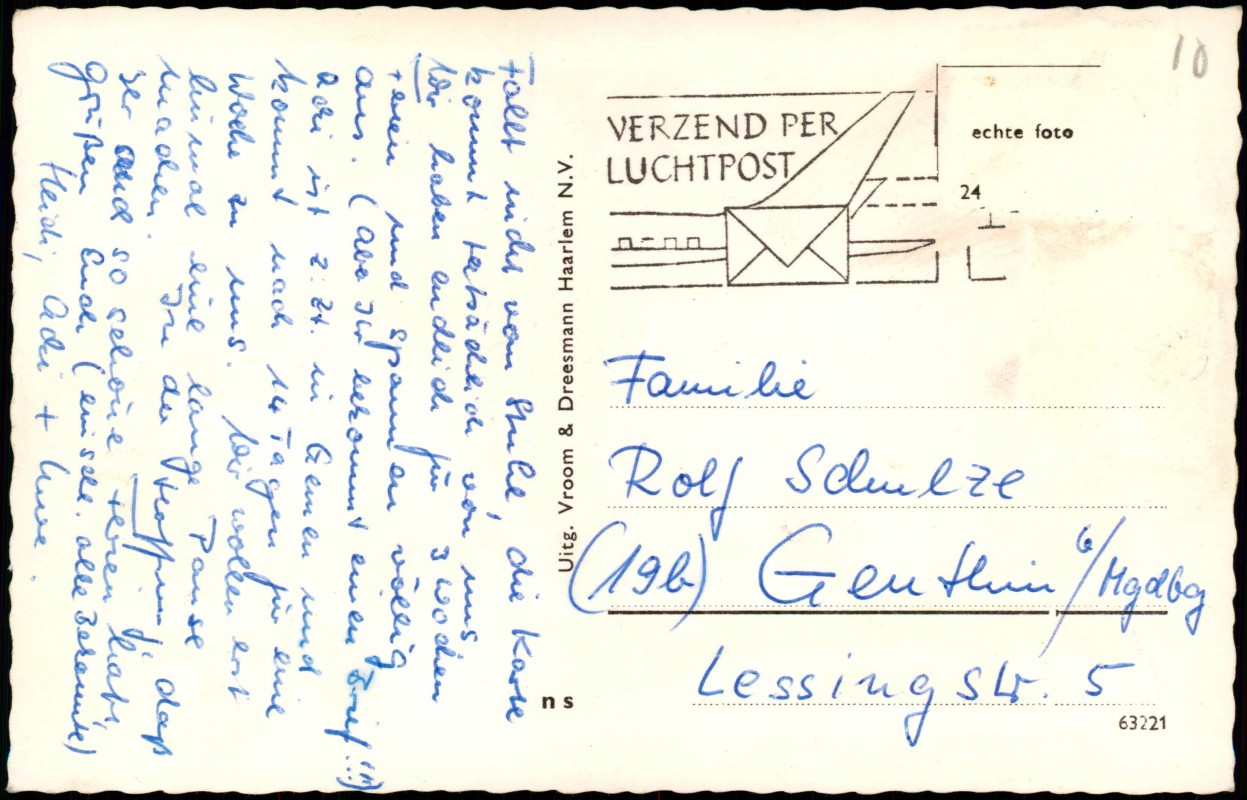 Fallt nicht vom Stuhl, die Karte
kommt tatsächlich von uns
Wir haben endlich für 3 Wochen
Ferien und spannen völlig
aus. (Aber Ihr bekommt einen Brief!!!)
Adi ist z. Zt. in Gemen und
kommt nach 14 Tagen für eine
Woche zu uns. Wir wollen erst
einmal eine lange Pause
machen. In der Hoffnung, daß
Ihr auch so schöne Ferien habt
grüßen Euch (einschl. alle Bekannte)
Heidi, Adi + Uwe.
Uitg. Vroom & Dreesmann Haarlem N.V.
n s
VERZEND PER
LUCHTPOST
echte foto
24
10
Familie
Rolf Schulze
(19b) Genthin b/Mgdbg
Lessingstr. 5
63221